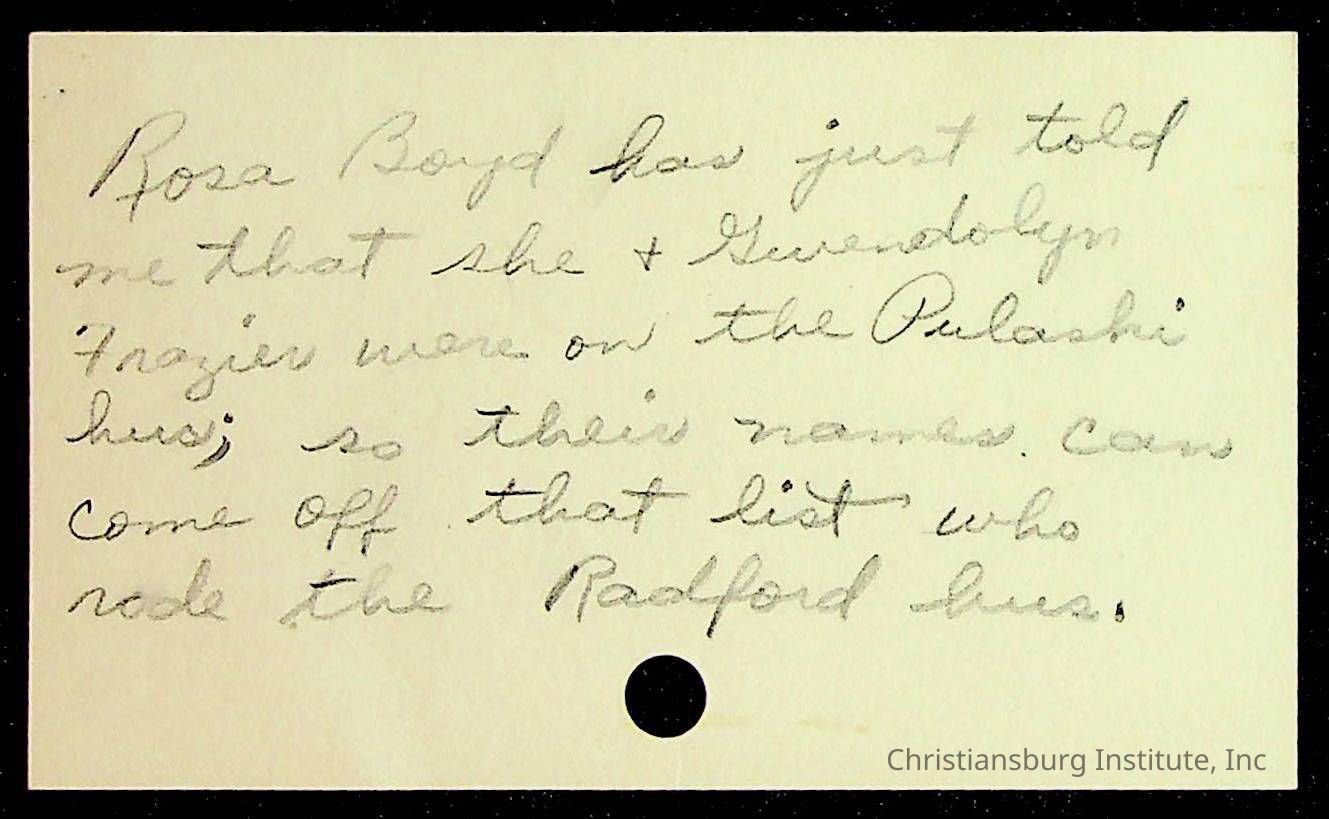 Rosa Boyd has just told
me that she + Gwendolyn
Frazier were on the Pulaski
bus; so their names can
come off that list who
rode the Radford bus.
Christiansburg Institute, Inc